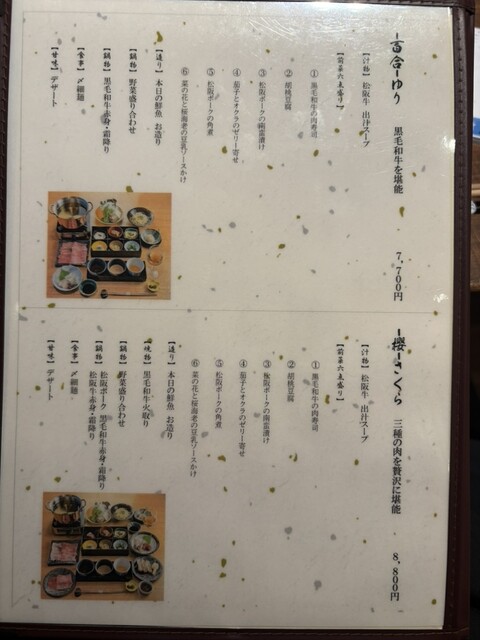 －百合－ゆり　黒毛和牛を堪能　7,700円
【汁物】松阪牛　出汁スープ
【前菜六点盛り】
①黒毛和牛の肉寿司
②胡桃豆腐
③松阪ポークの南蛮漬け
④茄子とオクラのゼリー寄せ
⑤松阪ポークの角煮
⑥菜の花と桜海老の豆乳ソースかけ
【造り】本日の鮮魚　お造り
【鍋物】野菜盛り合わせ
【鍋物】黒毛和牛赤身・霜降り
【食事】〆細麺
【甘味】デザート
－櫻－さくら　三種の肉を贅沢に堪能　8,800円
【汁物】松阪牛　出汁スープ
【前菜六点盛り】
①黒毛和牛の肉寿司
②胡桃豆腐
③松阪ポークの南蛮漬け
④茄子とオクラのゼリー寄せ
⑤松阪ポークの角煮
⑥菜の花と桜海老の豆乳ソースかけ
【造り】本日の鮮魚　お造り
【焼物】黒毛和牛火取り
【鍋物】野菜盛り合わせ
【鍋物】松阪ポーク　黒毛和牛赤身・霜降り
松阪牛赤身・霜降り
【食事】〆細麺
【甘味】デザート